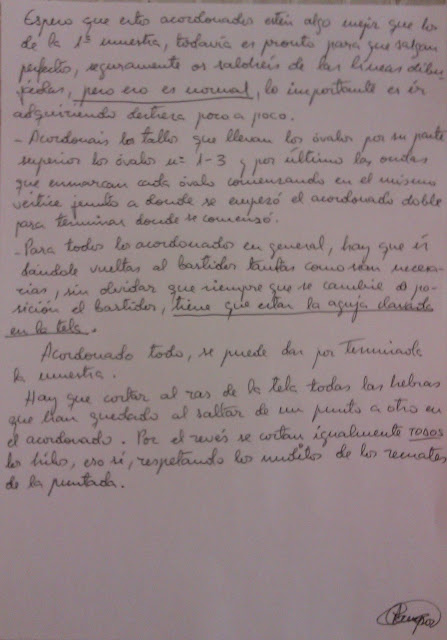 Espero que estos acordonados esten algo mejor que los
de la 1ª muestra, todavía es pronto para que salgan
perfectos, seguramente os saldréis de las líneas dibu
jadas, pero eso es normal, lo importante es ir
adquiriendo destreza poco a poco.
- Acordonais los tallos que llevan los óvalos por su parte
superior los óvalos nº 1-3 y por último las ondas
que enmarcan cada óvalo comenzando en el mismo
vértice junto a donde se empezó el acordonado doble
para terminar donde se comenzó.
- Para todos los acordonado en general, hay que ir
dándole vueltas al bastidor tantas como sean necesa-
rias, sin olvidar que siempre que se cambie de po-
sición el bastidor, tiene que estar la aguja clavada
en la tela.
Acordonado todo, se puede dar por terminada
la muestra.
Hay que cortar al ras de la tela todas las hebras
que han quedado al saltar de un punto a otro en
el acordonado. Por el revés se cortan igualmente TODOS
los hilos, eso sí, respetando los nuditos de los remates
de la puntada.